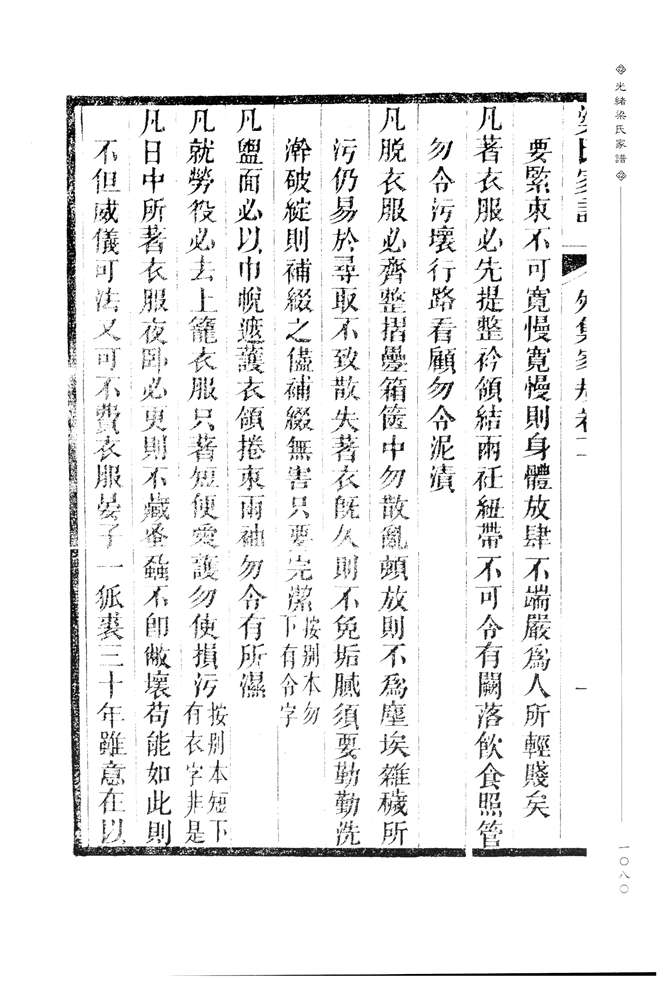 光緒梁氏家譜
一〇八〇
梁氏家譜 外集家規卷二 一
要緊束不可寬慢寬慢則身體放肆不端嚴為人所輕賤矣
凡著衣服必先提整衿領結兩衽紐帶不可令有闕落飲食照管
勿令污壞行路看顧勿令泥漬
凡脫衣服必齊整摺疊箱篋中勿散亂頓放則不為塵埃雜穢所
污仍易於尋取不致散失著衣既久則不免垢膩須要勤勤洗
澣破綻則補綴之儘補綴無害只要完潔按別本勿下有令字
凡盥面必以巾帨遮護衣領捲束兩袖勿令有所濕
凡就勞役必去上籠衣服只著短便愛護勿使損污按別本短下有衣字非是
凡日中所著衣服夜卧必更則不藏蚤蝨不即敝壞苟能如此則
不但威儀可法又可不費衣服晏子一狐裘三十年雖意在以